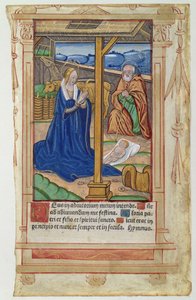 DEus in adiutorium meum intende. Dñe
ad adiuuandum me festina. Gloria pa
tri et filio et spiritui sancto. Sicut erat in
principio et nunc et semper et in secula. Hymnus.